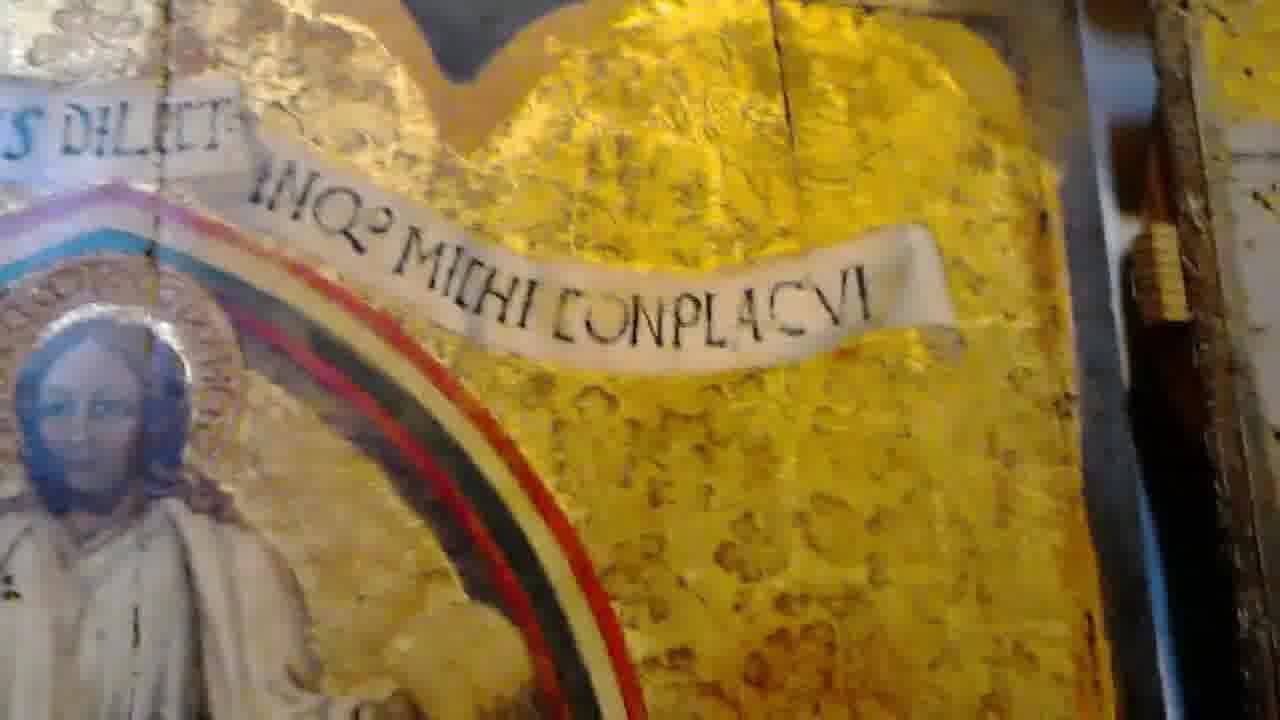 S DILECT
INQɔ MICHI CONPLACVI